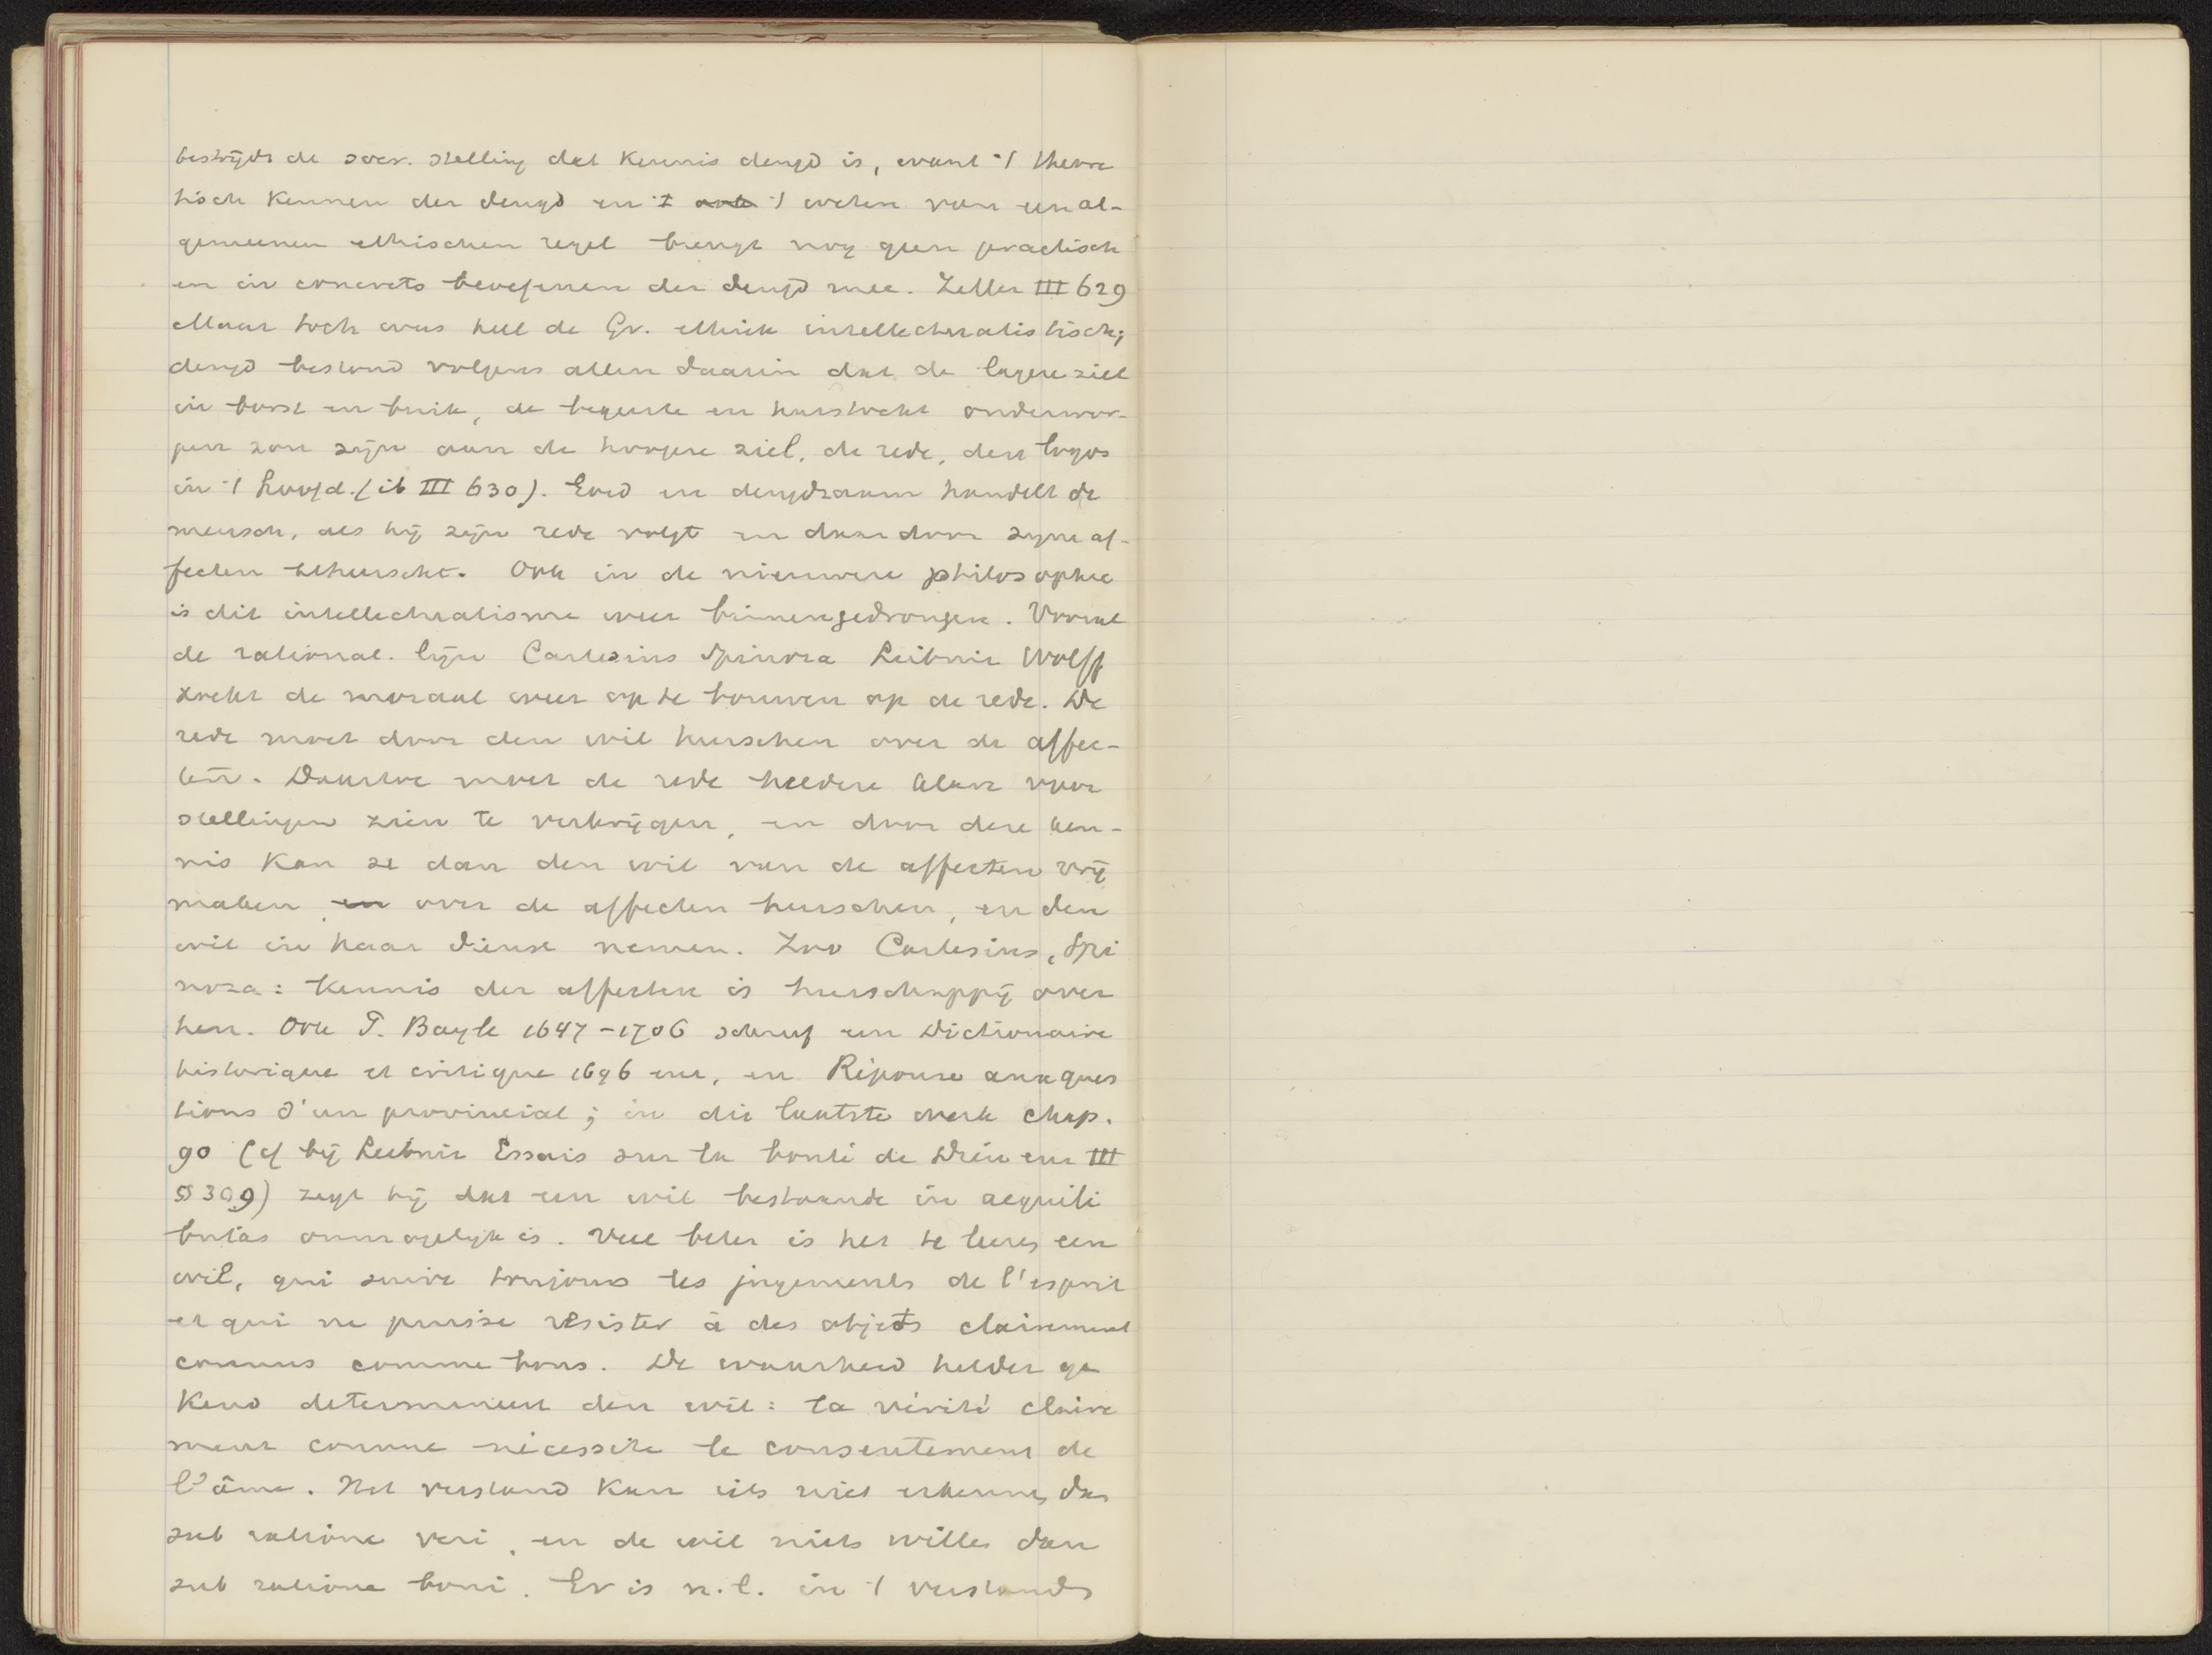 bestrijdt de socr. stelling dat kennis deugd is, want 't theore
tisch kennen der deugd en 't weten van een al-
gemeenen ethischen regel brengt nog geen practisch
en in concreto beoefenen der deugd mee. Zeller III 629
Maar toch was heel de Gr. ethiek intellectualistisch;
deugd bestond volgens allen daarin dat de lagere ziel
in borst en buik, de begeerte en hartstocht onderwor-
pen zou zijn aan de hoogere ziel, de rede, den logos
in 't hoofd. (ib III 630). Goed en deugdzaam handelt de
mensch, als hij zijn rede volgt en daardoor zijne af-
fecten beheerscht. Ook in de nieuwere philosophie
is dit intellectualisme weer binnengedrongen. Vooral
de rational. lijn Cartesius Spinoza Leibniz Wolff
zocht de moraal weer op te bouwen op de rede. De
rede moet door den wil heerschen over de affec-
ten. Daartoe moet de rede heldere klare voor
stellingen zien te verkrijgen, en door deze ken-
nis kan ze dan den wil van de affecten vrij
maken, en over de affecten heerschen, en den
wil in haar dienst nemen. Zoo Cartesius, Spi
noza: kennis der affecten is heerschappij over
hen. Ook P. Bayle 1647-1706 schreef een Dictionaire
historique et critique 1696 enz, en Réponse aux ques
tions d'un provincial; in dit laatste werk chap.
90 (cf bij Leibniz Essais sur la bonté de Dieu enz III
§ 309) zegt hij dat een wil bestaande in aequili
britas onmogelijk is. Veel beter is het te leeren een
wil, qui suive toujours les jugements de l'esprit
et qui ne puisse résister à des objets clairement
connus comme bons. De waarheid helder ge
kend determineert den wil: la vérité claire
ment connue nécessite le consentement de
l'âme. Het verstand kan iets niet erkennen dan
sub ratione veri, en de wil niets willen dan
sub ratione boni. Er is n.l. in 't verstands